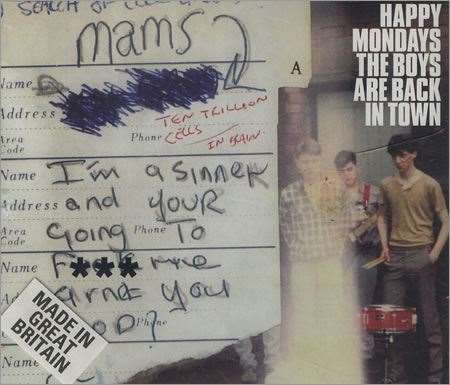 SEARCH OF
mams
A
Name
Address
TEN TRILLION
CELLS
Area
Code
Phone
IN BRAIN
Name I'm a sinner
Address and YOUR
Area
Code
Going Phone To
Name F***me
arnt you
Phone
Name
MADE IN
GREAT
BRITAIN
HAPPY
MONDAYS
THE BOYS
ARE BACK
IN TOWN